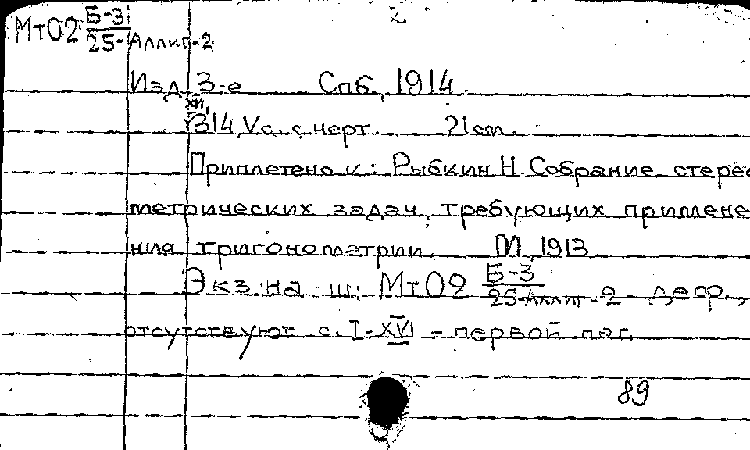 2
МтО2 Б-3
25-Аллиг-2
Изд. 3-е Спб, 1914
XVI,
314, V с. с черт. 21 cm.
Приплетено к: Рыбкин Н Собрание стерео
метрических задач, требующих примене
ния тригонометрии. М, 1913
Экз. на ш: МтО2 Б-3
25-Аллиг-2 - деф.,
отсутствуют с. I-XVI - первой паг.
89